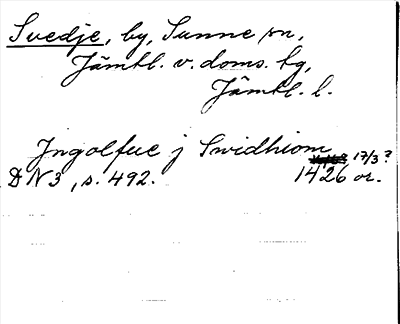 Svedje, by, Sunne sn,
Jämtl. v. doms. tg,
Jämtl. l.
Jngolfue j Swidhiom
17/3 ?
DN 3, s. 492. 1426 or.